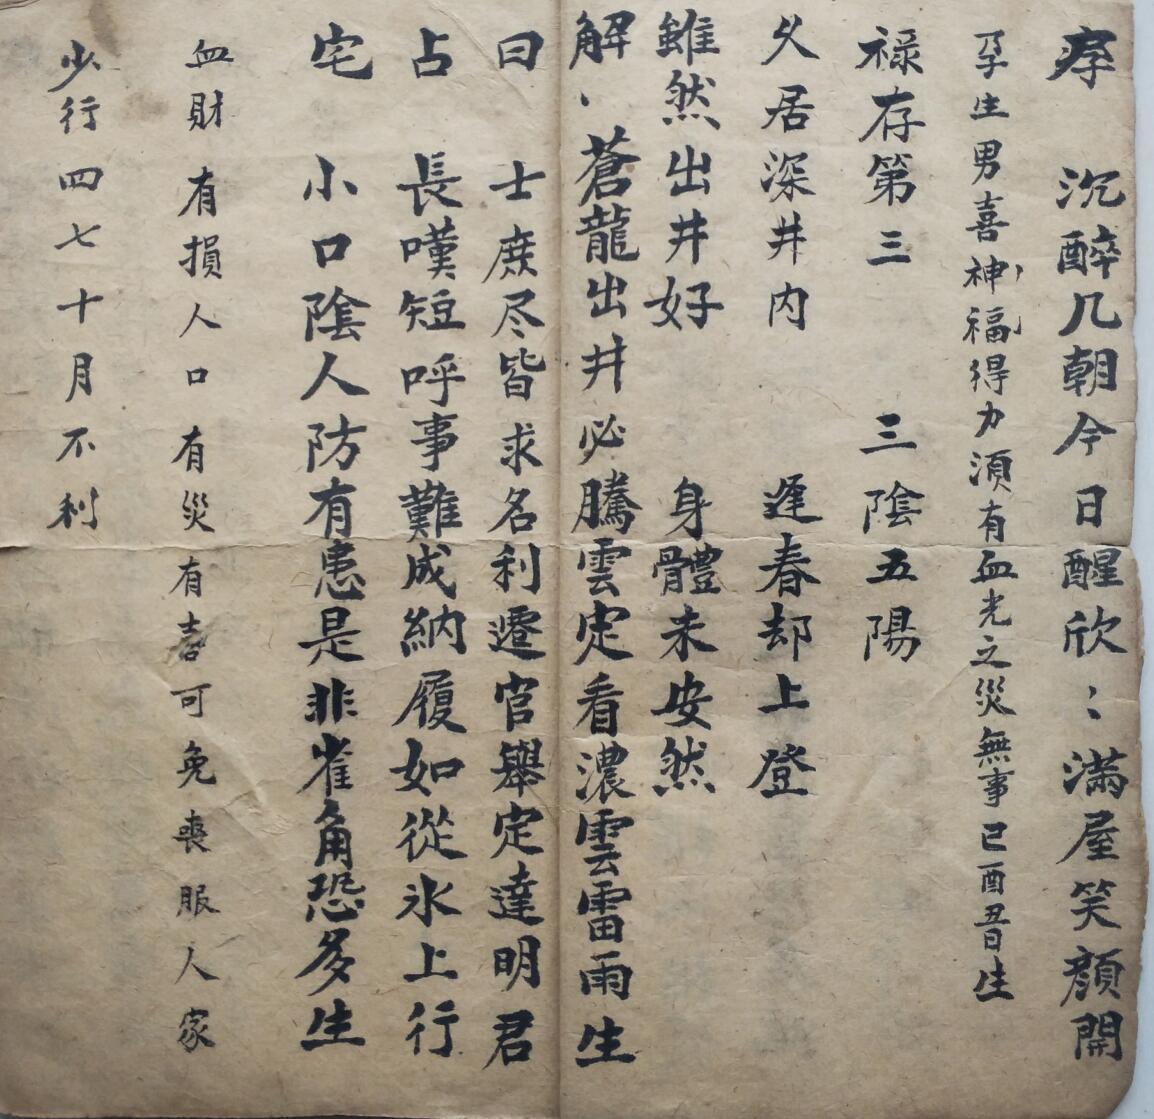 孕 沉醉几朝今日醒欣〻满屋笑顔開
孕生男喜神福得力須有血光之災無事巳酉丑日生
禄存第三 三陰五陽
久居深井内 逢春却上登
雖然出井好 身體未安然
解、蒼龍出井必騰雲定看濃雲雷雨生
曰 士庶尽皆求名利遷官舉定達明君
占 長嘆短呼事難成納履如從氷上行
宅 小口陰人防有患是非雀角恐多生
血財有損人口有災有喜可免喪服人家
少行四七十月不利